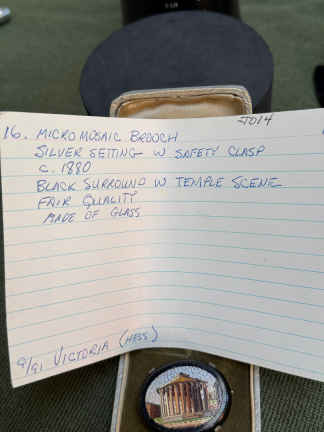 5014
16. MICROMOSAIC BROOCH
SILVER SETTING W SAFETY CLASP
c. 1880
BLACK SURROUND W TEMPLE SCENE
FAIR QUALITY
MADE OF GLASS
9/91 VICTORIA (HESS)